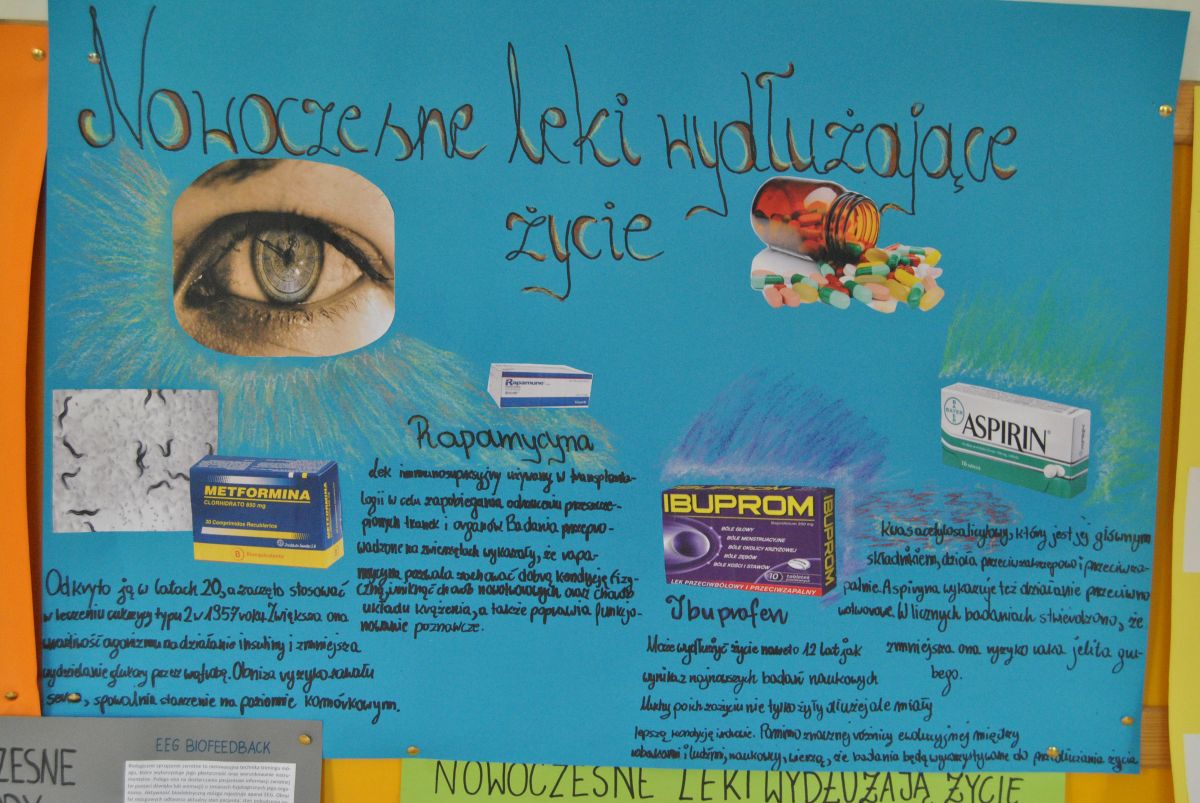 Nowoczesne leki wydłużające
życie
Rapamune
METFORMINA
CLORHIDRATO 850 mg
30 Comprimidos Recubiertos
B Bioequivalente
METFORMINA
Odkryto ją w latach 20, a zaczęto stosować
w leczeniu cukrzycy typu 2 w 1957 roku. Zwiększa ona
wrażliwość organizmu na działanie insuliny i zmniejsza
wydzielanie glukozy przez wątrobę. Obniża ryzyko zawału
serca, spowalnia starzenie na poziomie komórkowym.
Rapamycyna
Lek immunosupresyjny używany w transplanto-
logii w celu zapobiegania odrzuceniu przeszcze-
pionych tkanek i organów. Badania przepro-
wadzone na zwierzętach wykazały, że rapa-
mycyna pozwala zachować dobrą kondycję fizy-
czną, uniknąć chorób nowotworowych oraz chorób
układu krążenia, a także poprawia funkcjo-
nowanie poznawcze.
IBUPROM
Ibuprofenum 200 mg
BÓLE GŁOWY
BÓLE MENSTRUACYJNE
BÓLE OKOLICY KRZYŻOWEJ
BÓLE ZĘBÓW
BÓLE KOŚCI I STAWÓW
10 tabletek
LEK PRZECIWBÓLOWY I PRZECIWZAPALNY
IBUPROM
Ibuprofen
Może wydłużyć życie nawet o 12 lat jak
wynika z najnowszych badań naukowych
Muchy po ich zażyciu nie tylko żyły dłużej ale miały
lepszą kondycję zdrowia. Pomimo znacznej różnicy ewolucyjnej między
robakami i ludźmi, naukowcy wierzą, że badania będą wykorzystywane do przedłużania życia
BAYER
ASPIRIN
Kwas acetylosalicylowy, który jest jej głównym
składnikiem, działa przeciwzakrzepowo i przeciwza-
palnie. Aspiryna wykazuje też działanie przeciwno-
wotworowe. W licznych badaniach stwierdzono, że
zmniejsza ona ryzyko raka jelita gru-
bego.
EEG BIOFEEDBACK
NOWOCZESNE LEKI WYDŁUŻAJĄ ŻYCIE